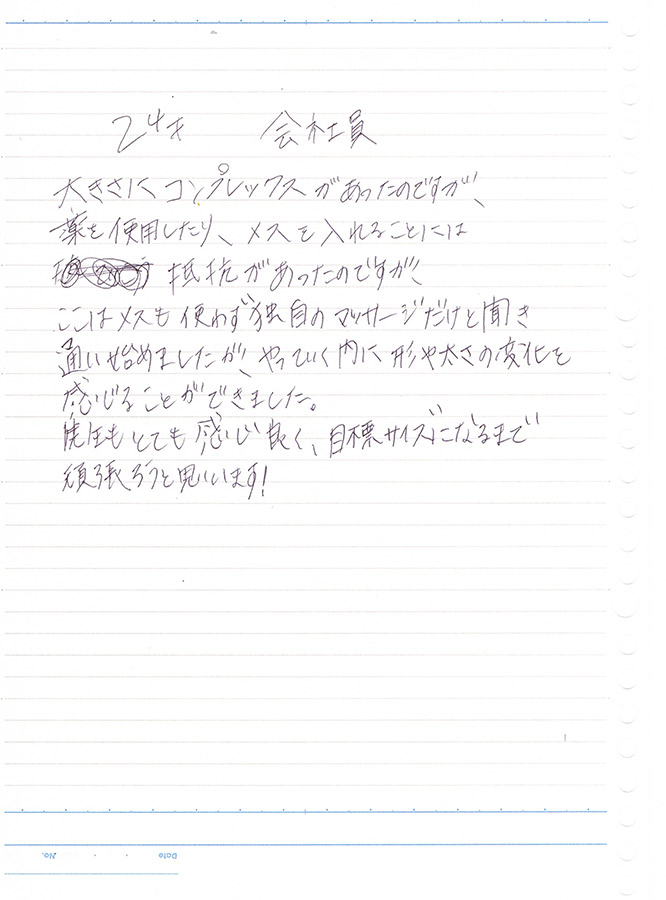 24才 会社員
大きさにコンプレックスがあったのですが、
薬を使用したり、メスを入れることには
抵抗があったのですが、
ここはメスも使わず独自のマッサージだけと聞き
通い始めましたが、やっていく内に形や太さの変化を
感じることができました。
先生もとても感じ良く、目標サイズになるまで
頑張ろうと思います!
No. ・ ・ Date